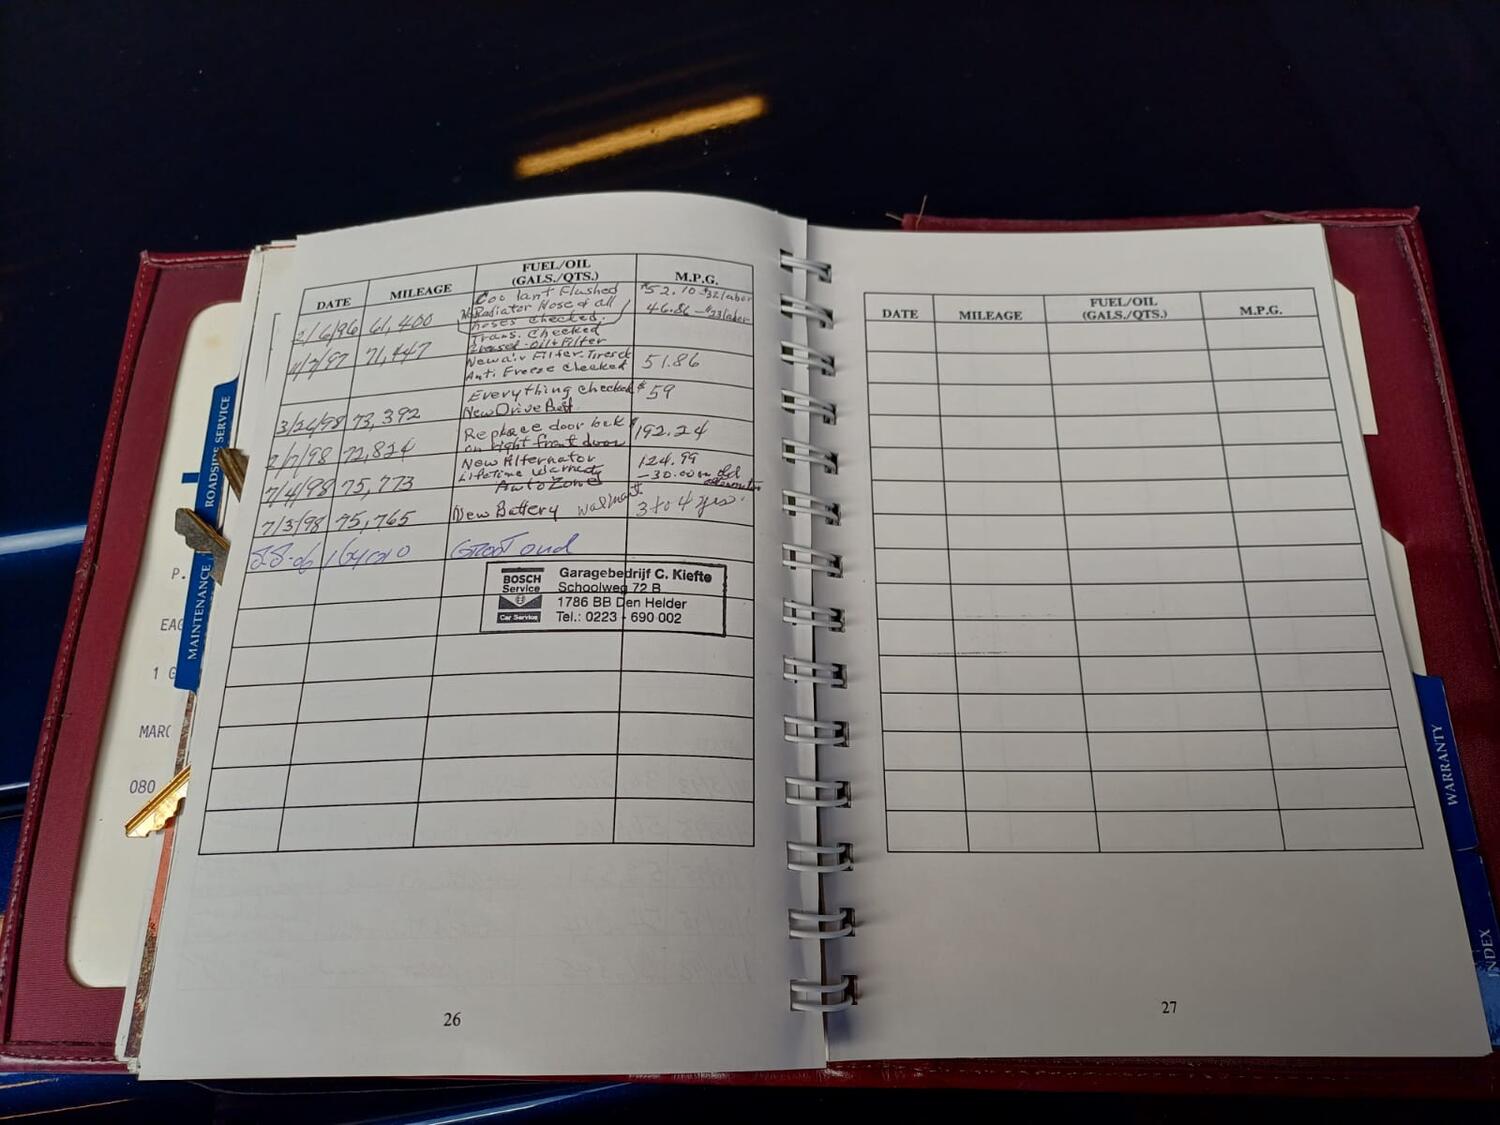 DATE MILEAGE FUEL/OIL (GALS./QTS.) M.P.G.
2/6/96 61,400 Coolant Flushed $52.10 - $32 labor
Radiator Hose & all 46.86 - $23 labor
hoses checked.
11/7/97 71,447 Trans. Checked
Oil & Filter
New air Filter. Tires &
Anti Freeze checked 51.86
3/24/98 73,392 Everything checked $59
New Drive Belt
2/7/98 72,824 Replace door lock $192.24
on right front door
7/4/98 75,773 New Alternator 124.99
LifeTime Warnedy -30.00 on old
AutoZone
7/3/98 75,765 New Battery walmart 3 to 4 yrs.
BOSCH
Service
Car Service
Garagebedrijf C. Kiefte
Schoolweg 72 B
1786 BB Den Helder
Tel.: 0223 - 690 002
26
DATE MILEAGE FUEL/OIL (GALS./QTS.) M.P.G.
27
ROADSIDE SERVICE
MAINTENANCE
WARRANTY
INDEX
P.
EAG
1 G
MARC
080